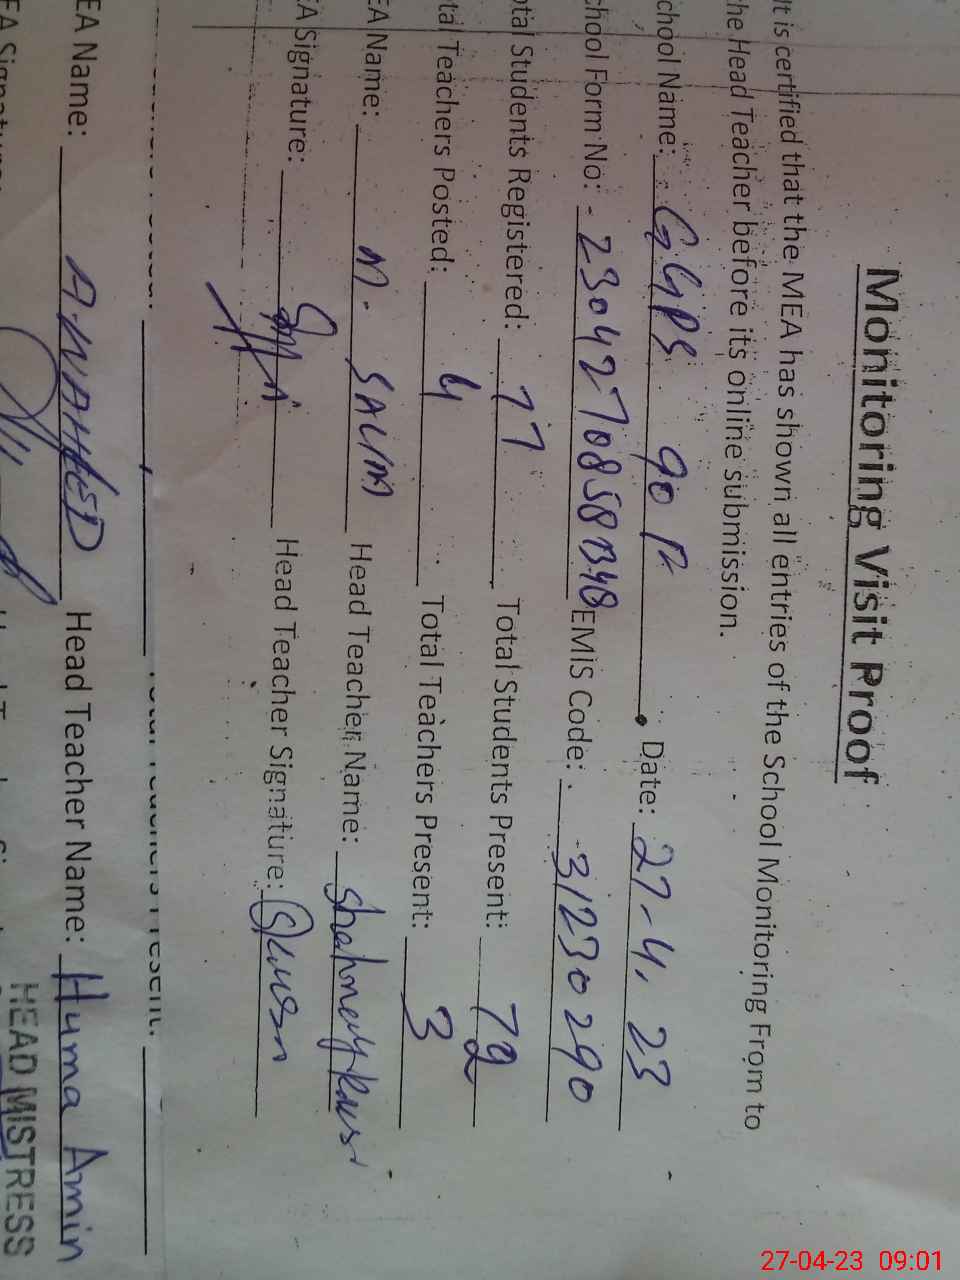 Monitoring Visit Proof
It is certified that the MEA has shown all entries of the School Monitoring From to
he Head Teacher before its online submission.
chool Name: GGPS 90 P Date: 27-4.23
chool Form No: - 23042708581348 EMIS Code: 31230290
otal Students Registered: 77 Total Students Present: 72
tal Teachers Posted: 4 Total Teachers Present: 3
EA Name: M. SALIM Head Teacher Name:
EA Signature: Head Teacher Signature:
EA Name: A.WAHEED Head Teacher Name: Huma Amin
HEAD MISTRESS
27-04-23 09:01